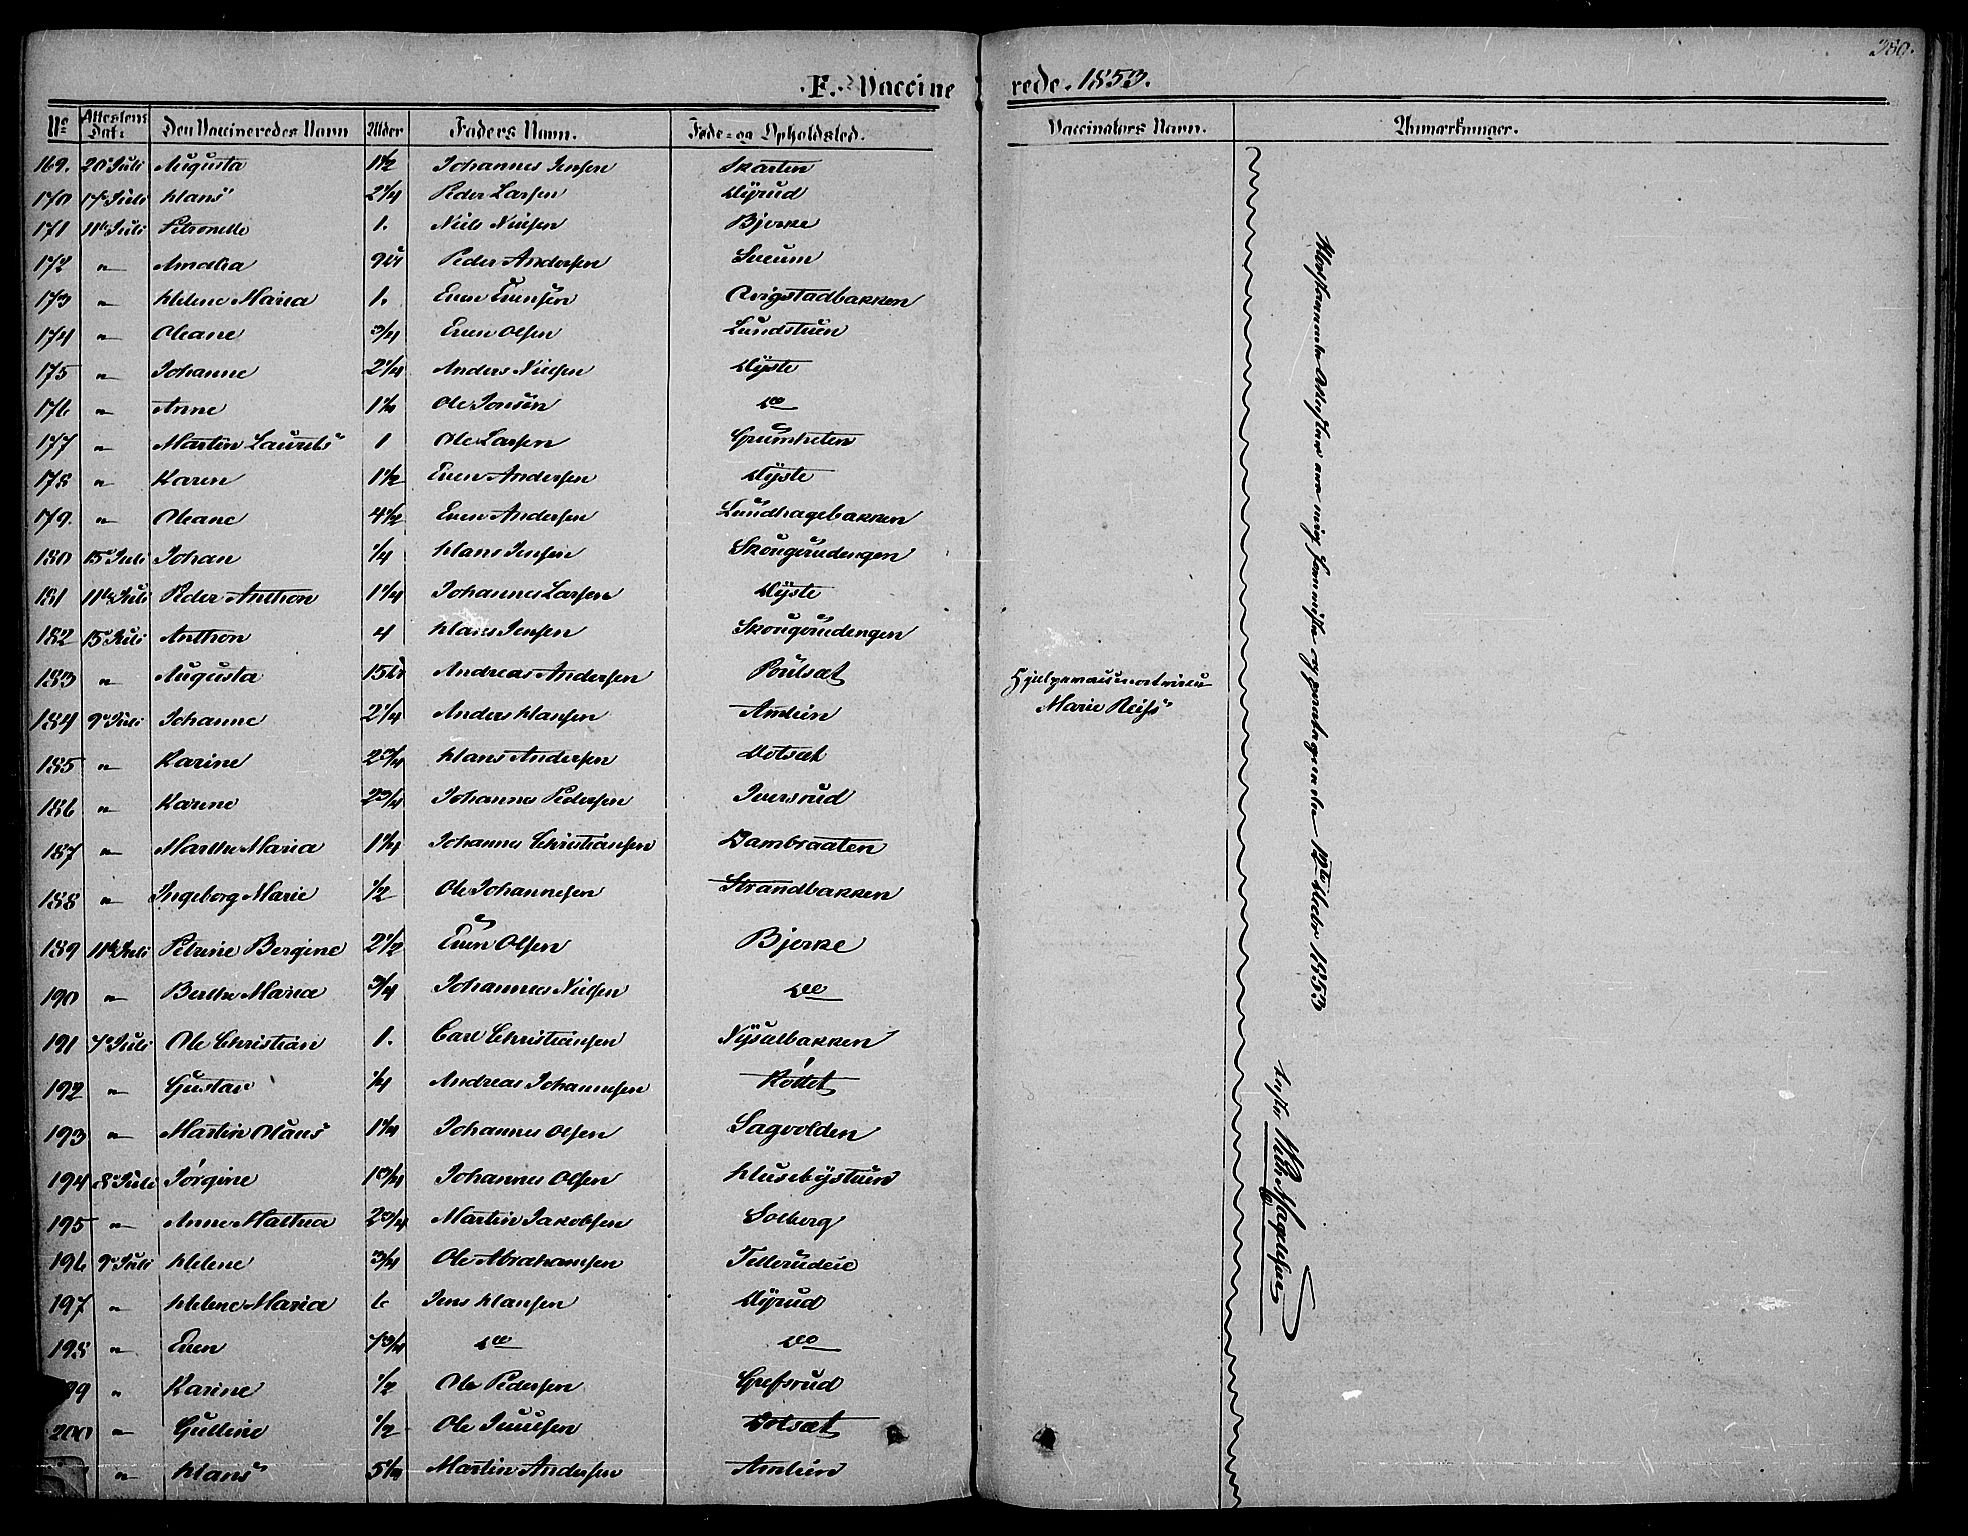 380.
F. Vaccinerede. 1853.
No Attestens Dat: Den Vaccineredes Navn Alder Faders Navn. Føde- og Opholdsted. Vaccinators Navn. Anmærkninger.
169. 20 Juli Augusta 1 1/2 Johannes Jensen Skarten
170 17 Juli Hans 2 1/4 Peder Larsen Myrud
171 11te Juli Petronelle 1. Niels Nielsen Bjerke
172 " Amalia Peder Andersen Sveum
173 " Helene Maria 1. Even Evensen Qvigstadbakken
174 " Oleane 3/4 Even Olsen Lundstuen
175 " Johanne 2 1/4 Anders Nielsen Dyste
176 " Anne Ole Jonsen do
177 " Martin Laurits 1 Ole Larsen
178 " Karen 1 1/2 Even Andersen Dyste
179. " Oleane 4 1/2 Even Andersen Lundhagebakken
180 15 Juli Johan 1/4 Hans Jensen Skougerudengen
181 11te Juli Peder Anthon 1 1/4 Johannes Larsen Dyste
182 15 Juli Anthon 4 Hans Jensen Skougerudengen
183 " Augusta Andreas Andersen Poulsæt
184 9 Juli Johanne 2 1/4 Anders Hansen Amlien
185 " Karine 2 3/4 Hans Andersen Dotsæt
186 " Karine 2 3/4 Johannes Pedersen Iversrud
187 " Marthe Maria 1 1/4 Johannes Christiansen Dambraaten
188 " Ingeborg Marie 1/2 Ole Johannesen Strandbakken
189 11te Juli Petrine Bergine 2 1/2 Even Olsen Bjerke
190 " Berthe Maria 3/4 Johannes Nielsen do
191 7 Juli Ole Christian 1. Carl Christiansen Nysætbakken
192 " Gustav 1/4 Andreas Johannesen
193 " Martin Olaus 1 1/4 Johannes Olsen Sagvolden
194 8 Juli Jørgine 1 3/4 Johannes Olsen Husebystuen
195 " Anne Mathea 2 3/4 Martin Jakobsen Solberg
196 9 Juli Helene 3/4 Ole Abrahamsen Tellerudeie
197 " Helene Maria 6 Jens Hansen Myrud
198 " Even do do
99 " Karine 1/2 Ole Pedersen Grefsrud
200 " Gulline 1/2 Ole Iversen Dotsæt
" Hans Martin Andersen Amlien
Marie Reiss
Attester ere mig 12te 1853